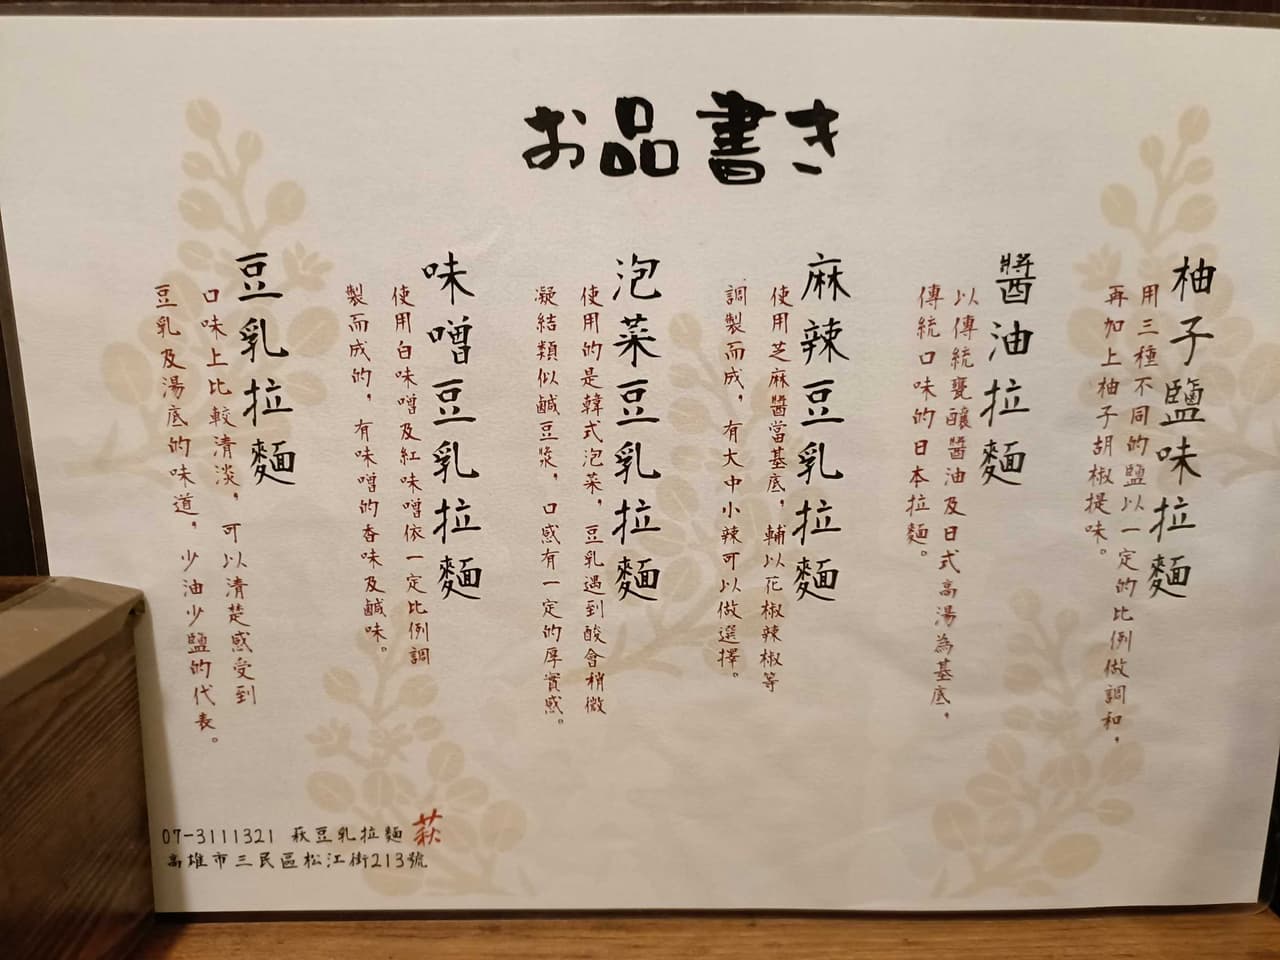 お品書き
柚子鹽味拉麵
用三種不同的鹽以一定的比例做調和，
再加上柚子胡椒提味。
醬油拉麵
以傳統甕釀醬油及日式高湯為基底，
傳統口味的日本拉麵。
麻辣豆乳拉麵
使用芝麻醬當基底，輔以花椒辣椒等
調製而成，有大中小辣可以做選擇。
泡菜豆乳拉麵
使用的是韓式泡菜，豆乳遇到酸會稍微
凝結類似鹹豆漿，口感有一定的厚實感。
味噌豆乳拉麵
使用白味噌及紅味噌依一定比例調
製而成的，有味噌的香味及鹹味。
豆乳拉麵
口味上比較清淡，可以清楚感受到
豆乳及湯底的味道，少油少鹽的代表。
07-3111321 萩豆乳拉麵 萩
高雄市三民區松江街213號